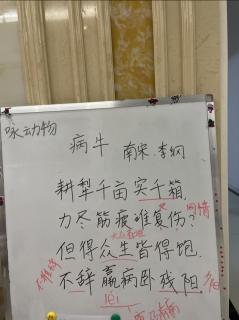 咏动物
病牛
南宋 李纲
耕犁千亩实千箱,
力尽筋疲谁复伤?
同情
但得众生皆得饱,
不辞羸病卧残阳。
léi